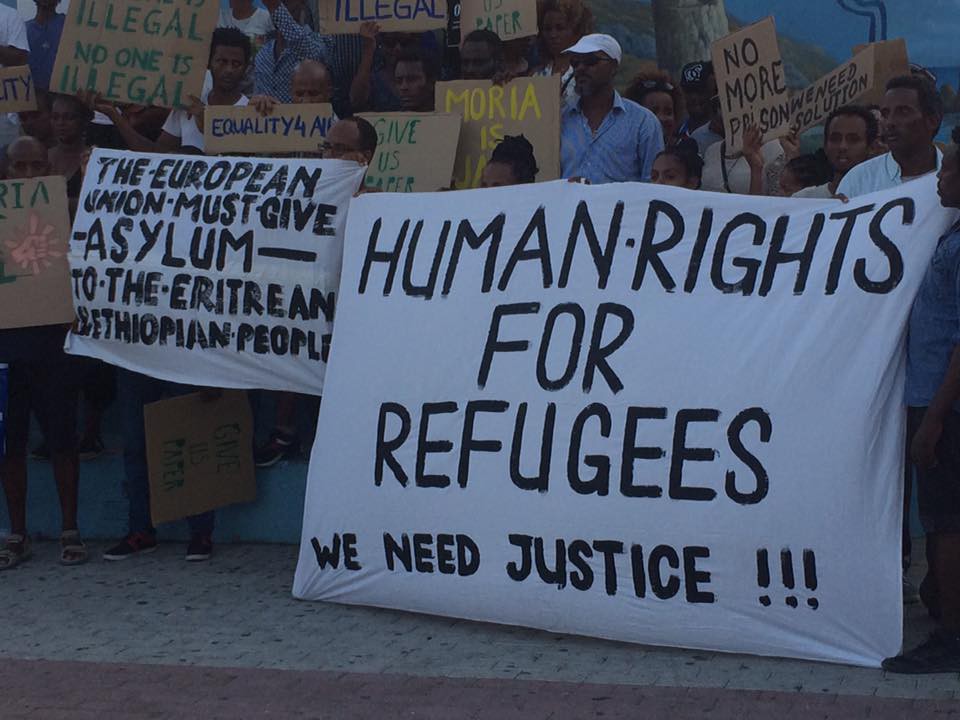 ILLEGAL
NO ONE IS
ILLEGAL
ILLEGAL
PAPER
ITY
EQUALITY 4 Al
GIVE
US
PAPER
MORIA
IS
NO
MORE
PRISON
WE NEED
SOLUTION
RIA
THE·EUROPEAN
UNION·MUST·GIVE
-ASYLUM-
TO·THE·ERITREAN
&ETHIOPIAN·PEOPLE
HUMAN·RIGHTS
FOR
REFUGEES
WE NEED JUSTICE !!!
GIVE
US
PAPER